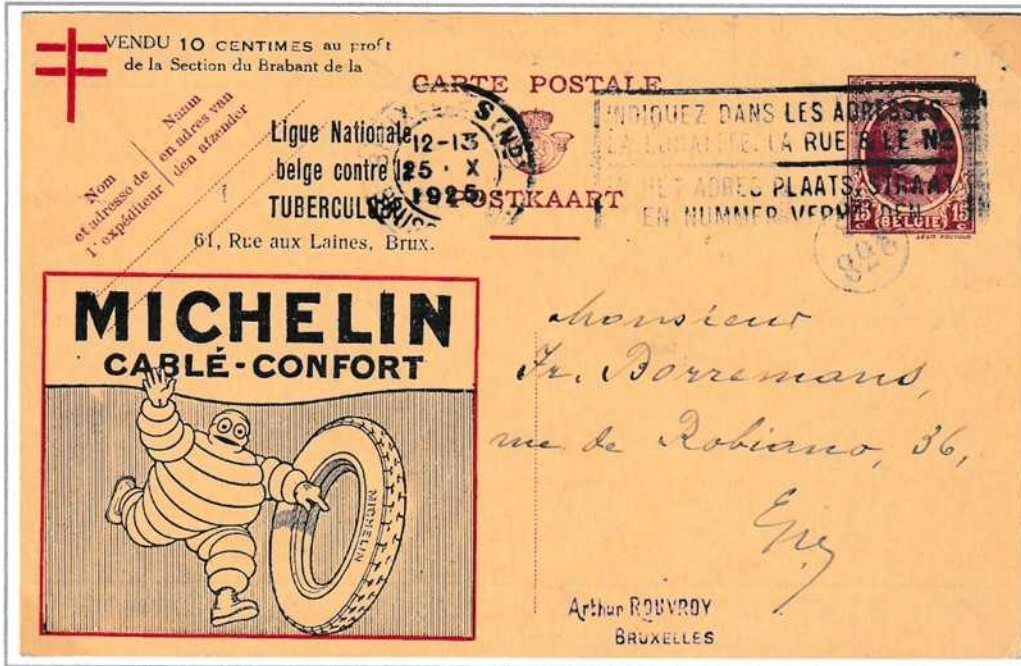 VENDU 10 CENTIMES au profit
de la Section du Brabant de la
Nom
et adresse de
l'expéditeur
Naam
en adres van
den afzender
CARTE POSTALE
POSTKAART
Ligue Nationale
belge contre la
TUBERCULOSE
61, Rue aux Laines, Brux.
12-13
25 · X
1925
INDIQUEZ DANS LES ADRESSES
LA LOCALITE, LA RUE & LE No
IN HET ADRES PLAATS, STRAAT
EN NUMMER VERMELDEN
15 BELGIE 15
c c
MICHELIN
CABLÉ-CONFORT
MICHELIN
MICHELIN
Monsieur
Fr. Borremans,
rue de Robiano, 36,
Arthur ROUVROY
BRUXELLES